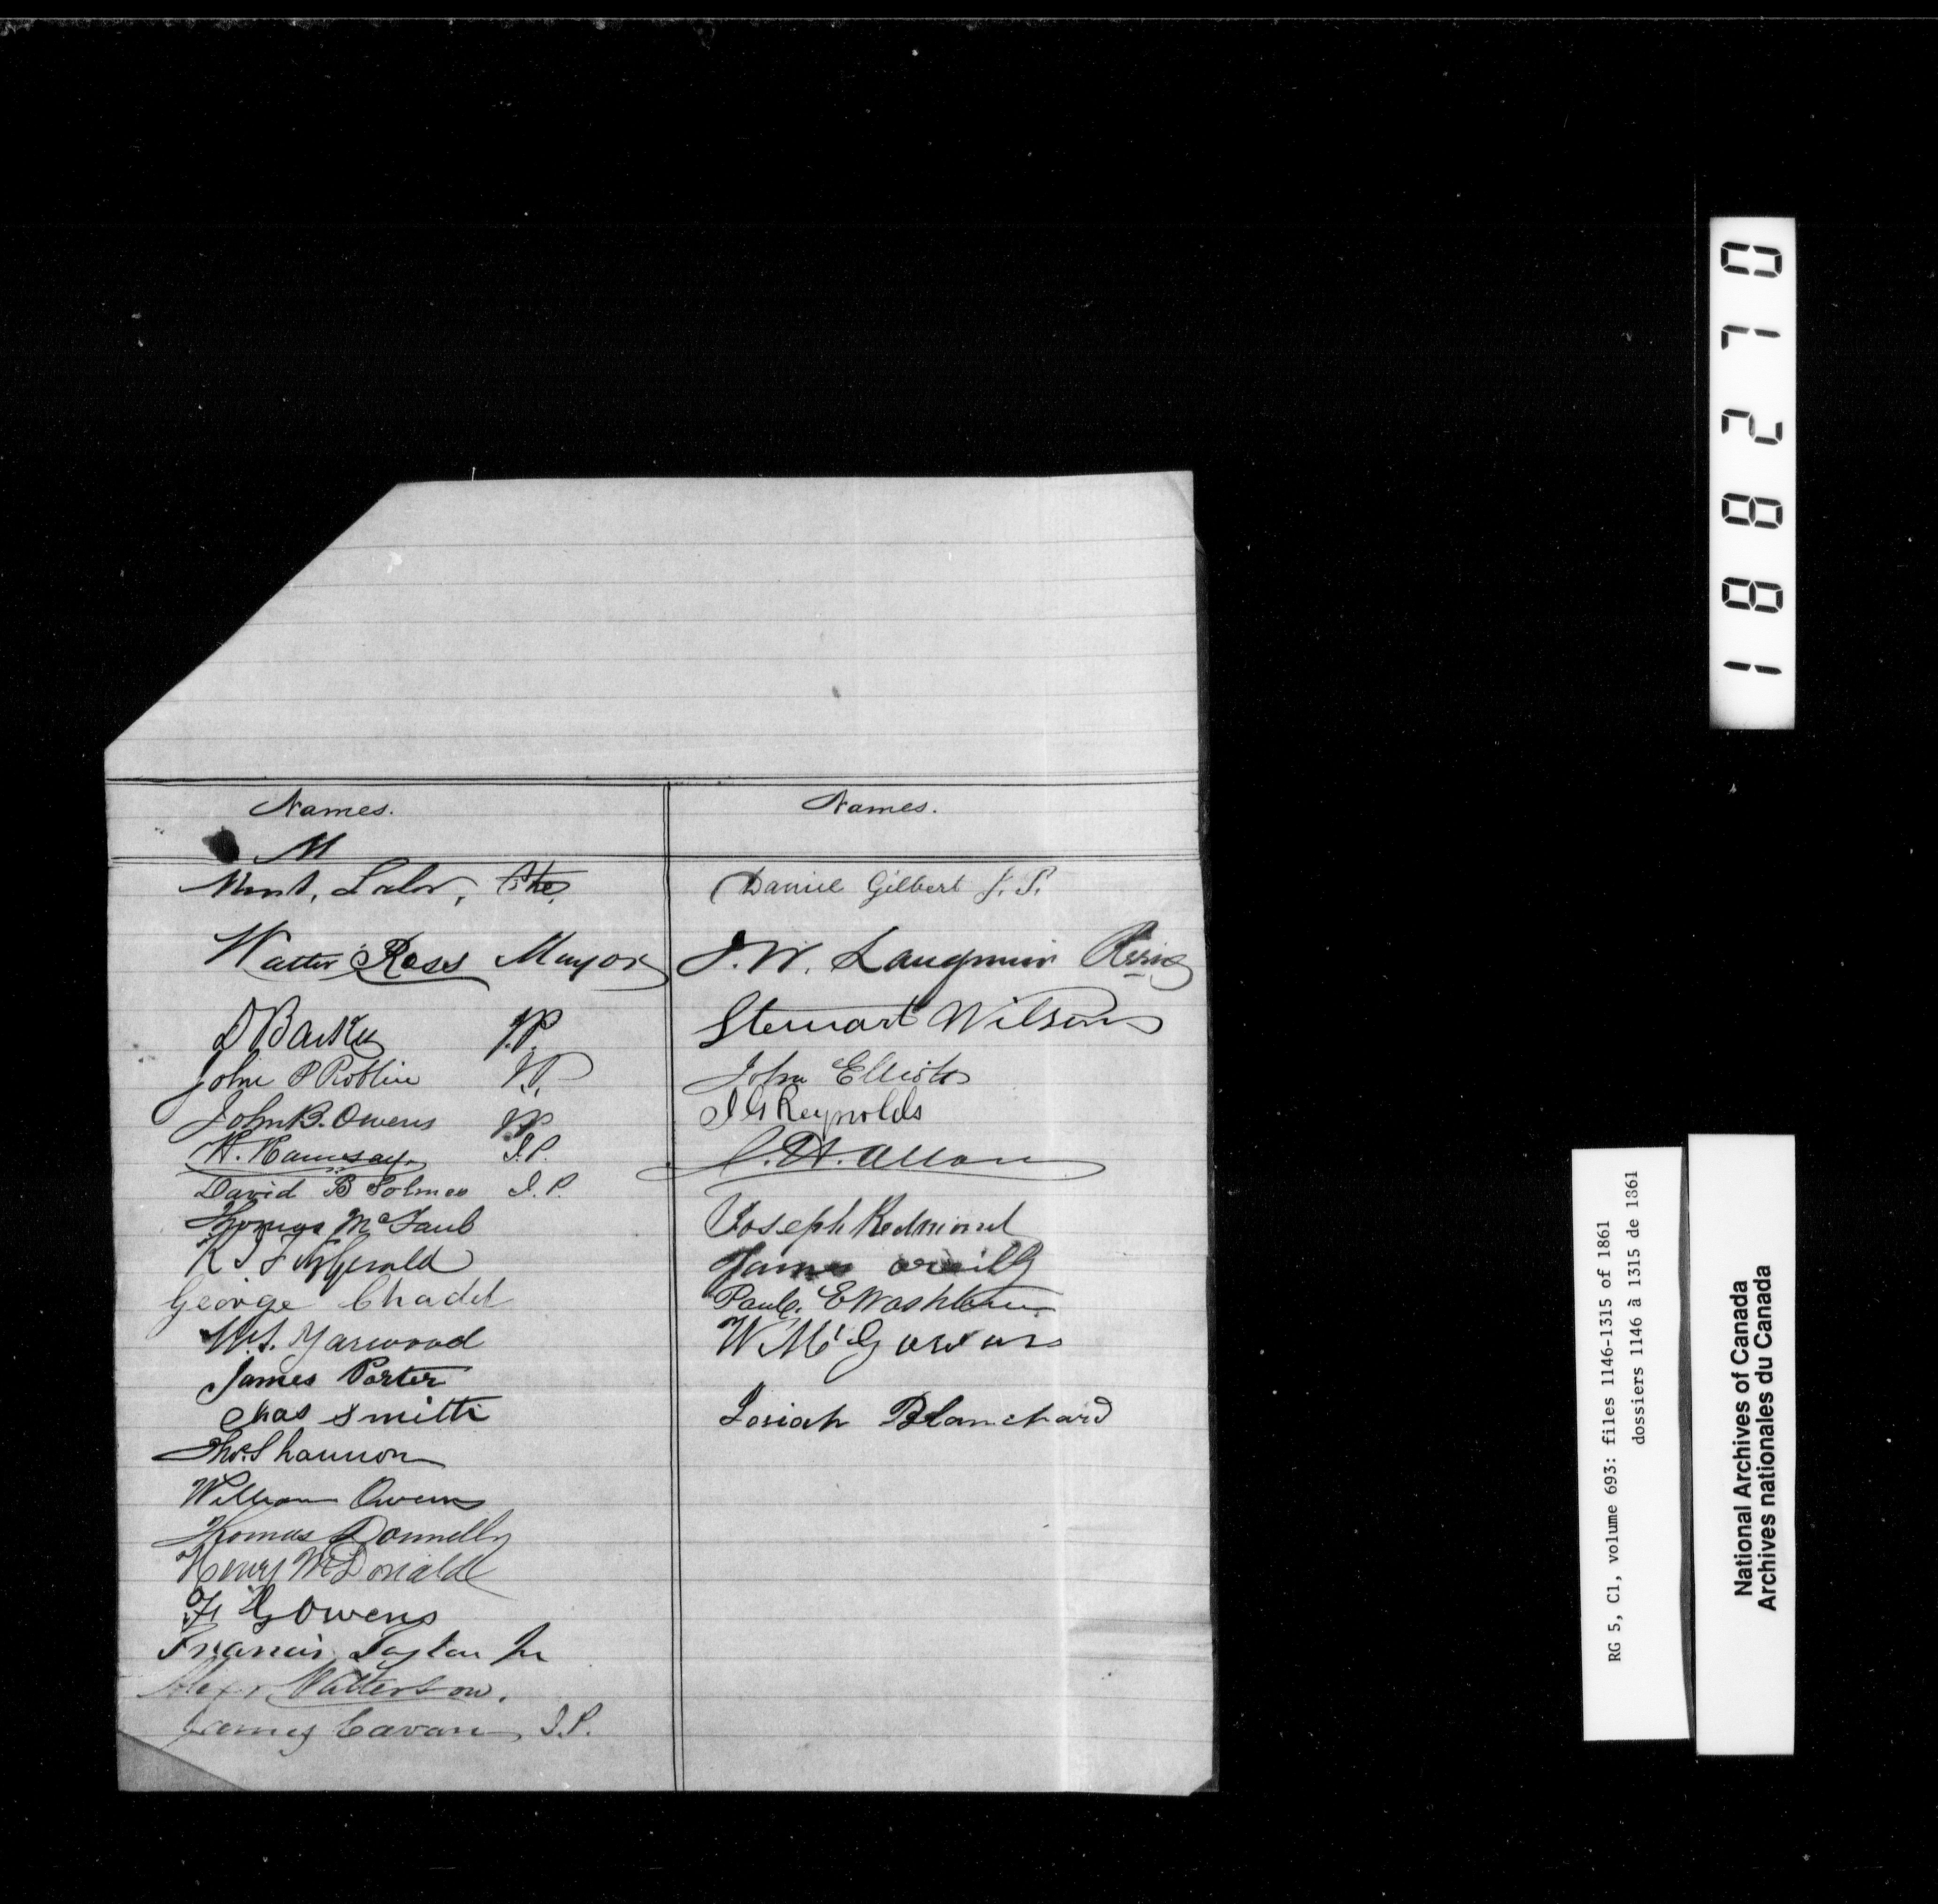 Names.
M
Lalor,
Walter Ross Mayor
D Barker J.P.
John P Roblin J.P.
John B. Owens J.P.
R. Ramsay J.P.
David B Solmes J.P.
Thomas McFaul
R J Fitzgerald
George Chadd
W. S. Yarwood
James Porter
Chas Smith
Thos. Shannon
William Owens
Thomas Donnelly
Henry McDonald
Owens
Francis Taylor Jr
Alexr Patterson.
James Cavan J.P.
Names.
Daniel Gilbert J.P.
J. W. Langmuir
Stewart Wilson
John Elliott
J G Reynolds
C. H. Allan
Joseph Redmond
James oreilly
Paul. E Washburn
W McGowan
Josiah Blanchard
188270
RG 5, C1, volume 693: files 1146-1315 of 1861
dossiers 1146 à 1315 de 1861
National Archives of Canada
Archives nationales du Canada